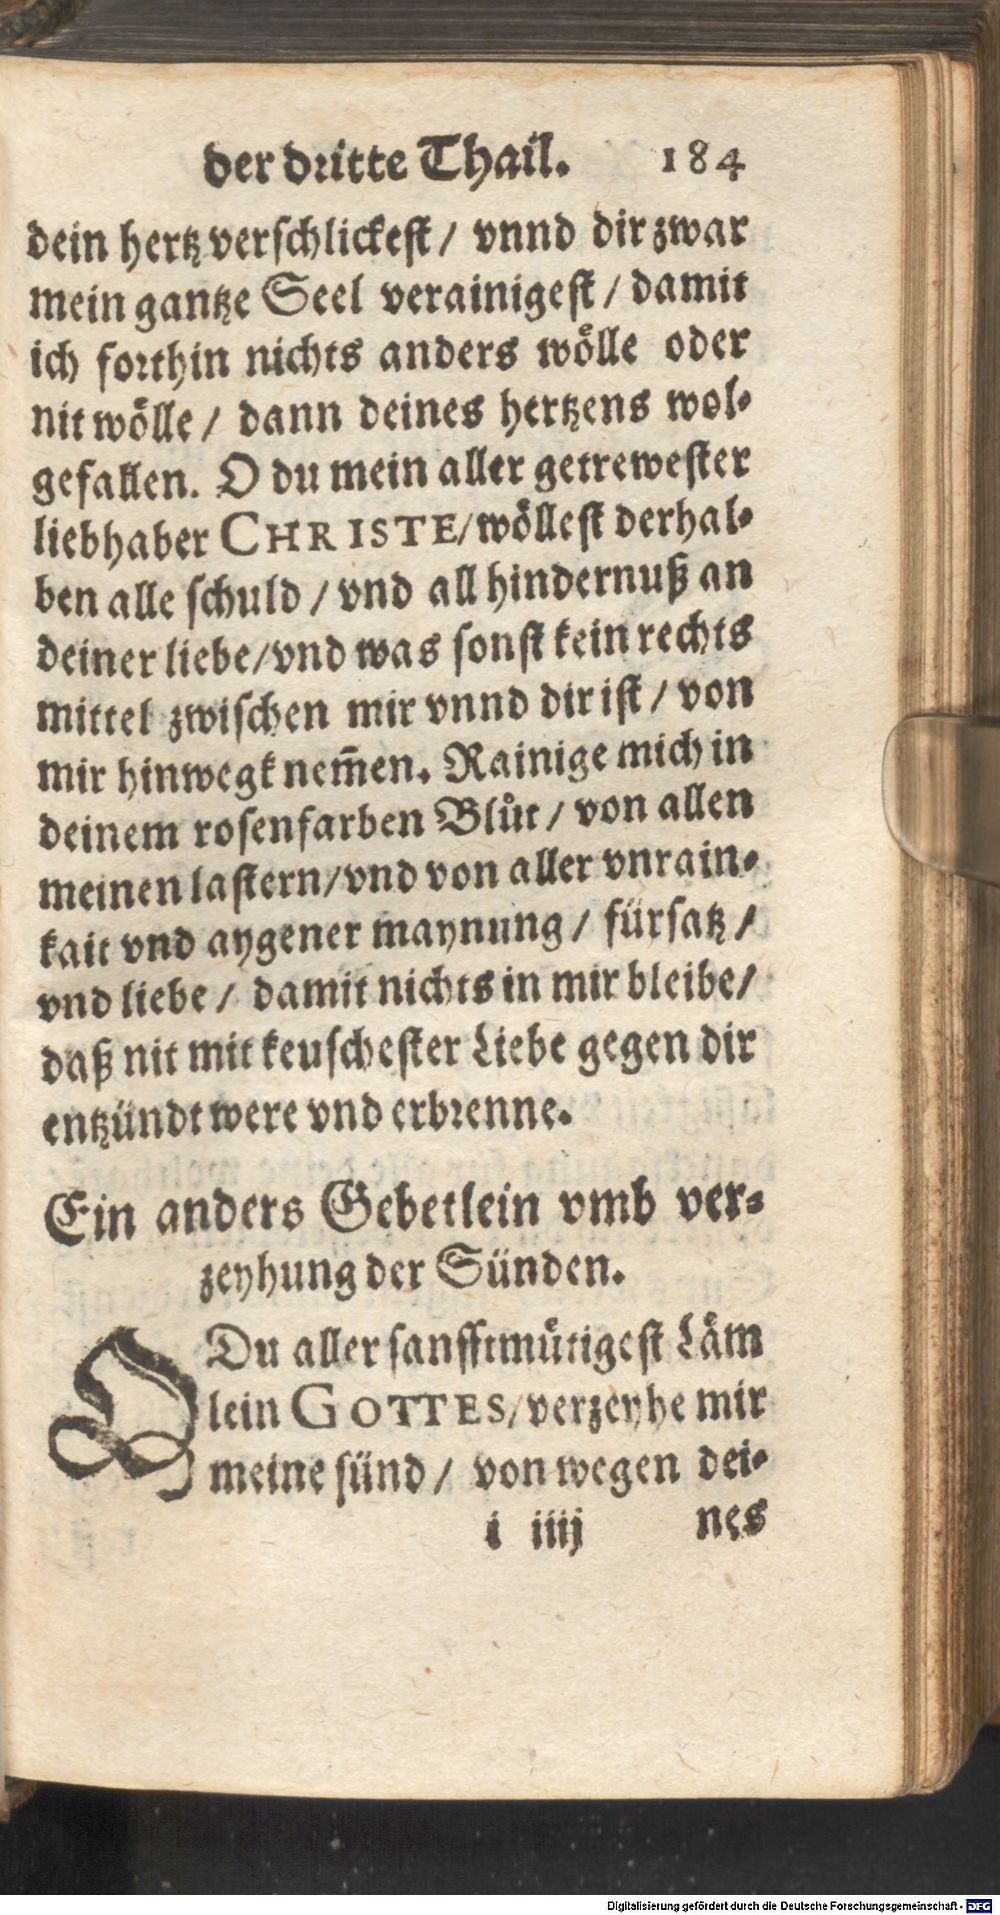 der dritte Thail. 184
dein hertz verschlickest / vnnd dir zwar
mein gantze Seel verainigest / damit
ich forthin nichts anders wölle oder
nit wölle / dann deines hertzens wol-
gefallen. O du mein aller getrewester
liebhaber CHRISTE/ wöllest derhal-
ben alle schuld / vnd all hindernuß an
deiner liebe/ vnd was sonst kein rechts
mittel zwischen mir vnnd dir ist / von
mir hinwegk nem̄en. Rainige mich in
deinem rosenfarben Blůt / von allen
meinen lastern/ vnd von aller vnrain-
kait vnd aygener maynung / fürsatz /
vnd liebe / damit nichts in mir bleibe/
daß nit mit keuschester Liebe gegen dir
entzündt were vnd erbrenne.
Ein anders Gebetlein vmb ver-
zeyhung der Sünden.
O Du aller sanfftmütigest Läm
lein GOTTES/ verzeyhe mir
meine sünd / von wegen dei-
i iiij nes
Digitalisierung gefördert durch die Deutsche Forschungsgemeinschaft - DFG